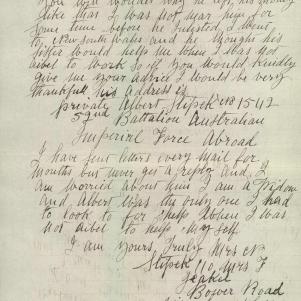 You will wonder why he left his money
like that I was not near him for
some time before he Enlisted I went
to New South Wales and he thought his
sister would help me when I was not
aibel to work So if You would kindly
give me your advice I would be very
thankful his address is
private Albert Stipek No 1542
59nd Battalion Australian
Imperial Force Abroad
I have sent letters every mail for
months but never got a reply and I
am worried about him I am a Widow
and Albert was the only one I had
to look to for help when I was
not aibel to help My self
I am yours Truly Mrs N
Stipek C/o Mrs F
Bower Road